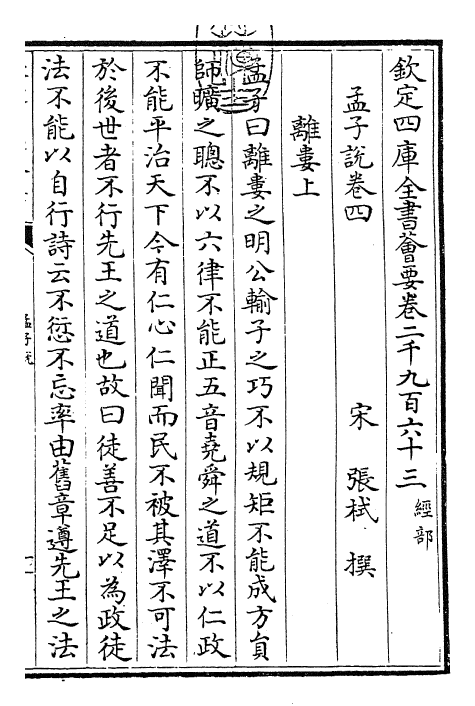 欽定四庫全書薈要卷二千九百六十三 經部
孟子說卷四
宋 張栻 撰
離婁上
孟子曰離婁之明公輸子之巧不以規矩不能成方員
師曠之聰不以六律不能正五音堯舜之道不以仁政
不能平治天下今有仁心仁聞而民不被其澤不可法
於後世者不行先王之道也故曰徒善不足以為政徒
法不能以自行詩云不愆不忘率由舊章遵先王之法
孟子說